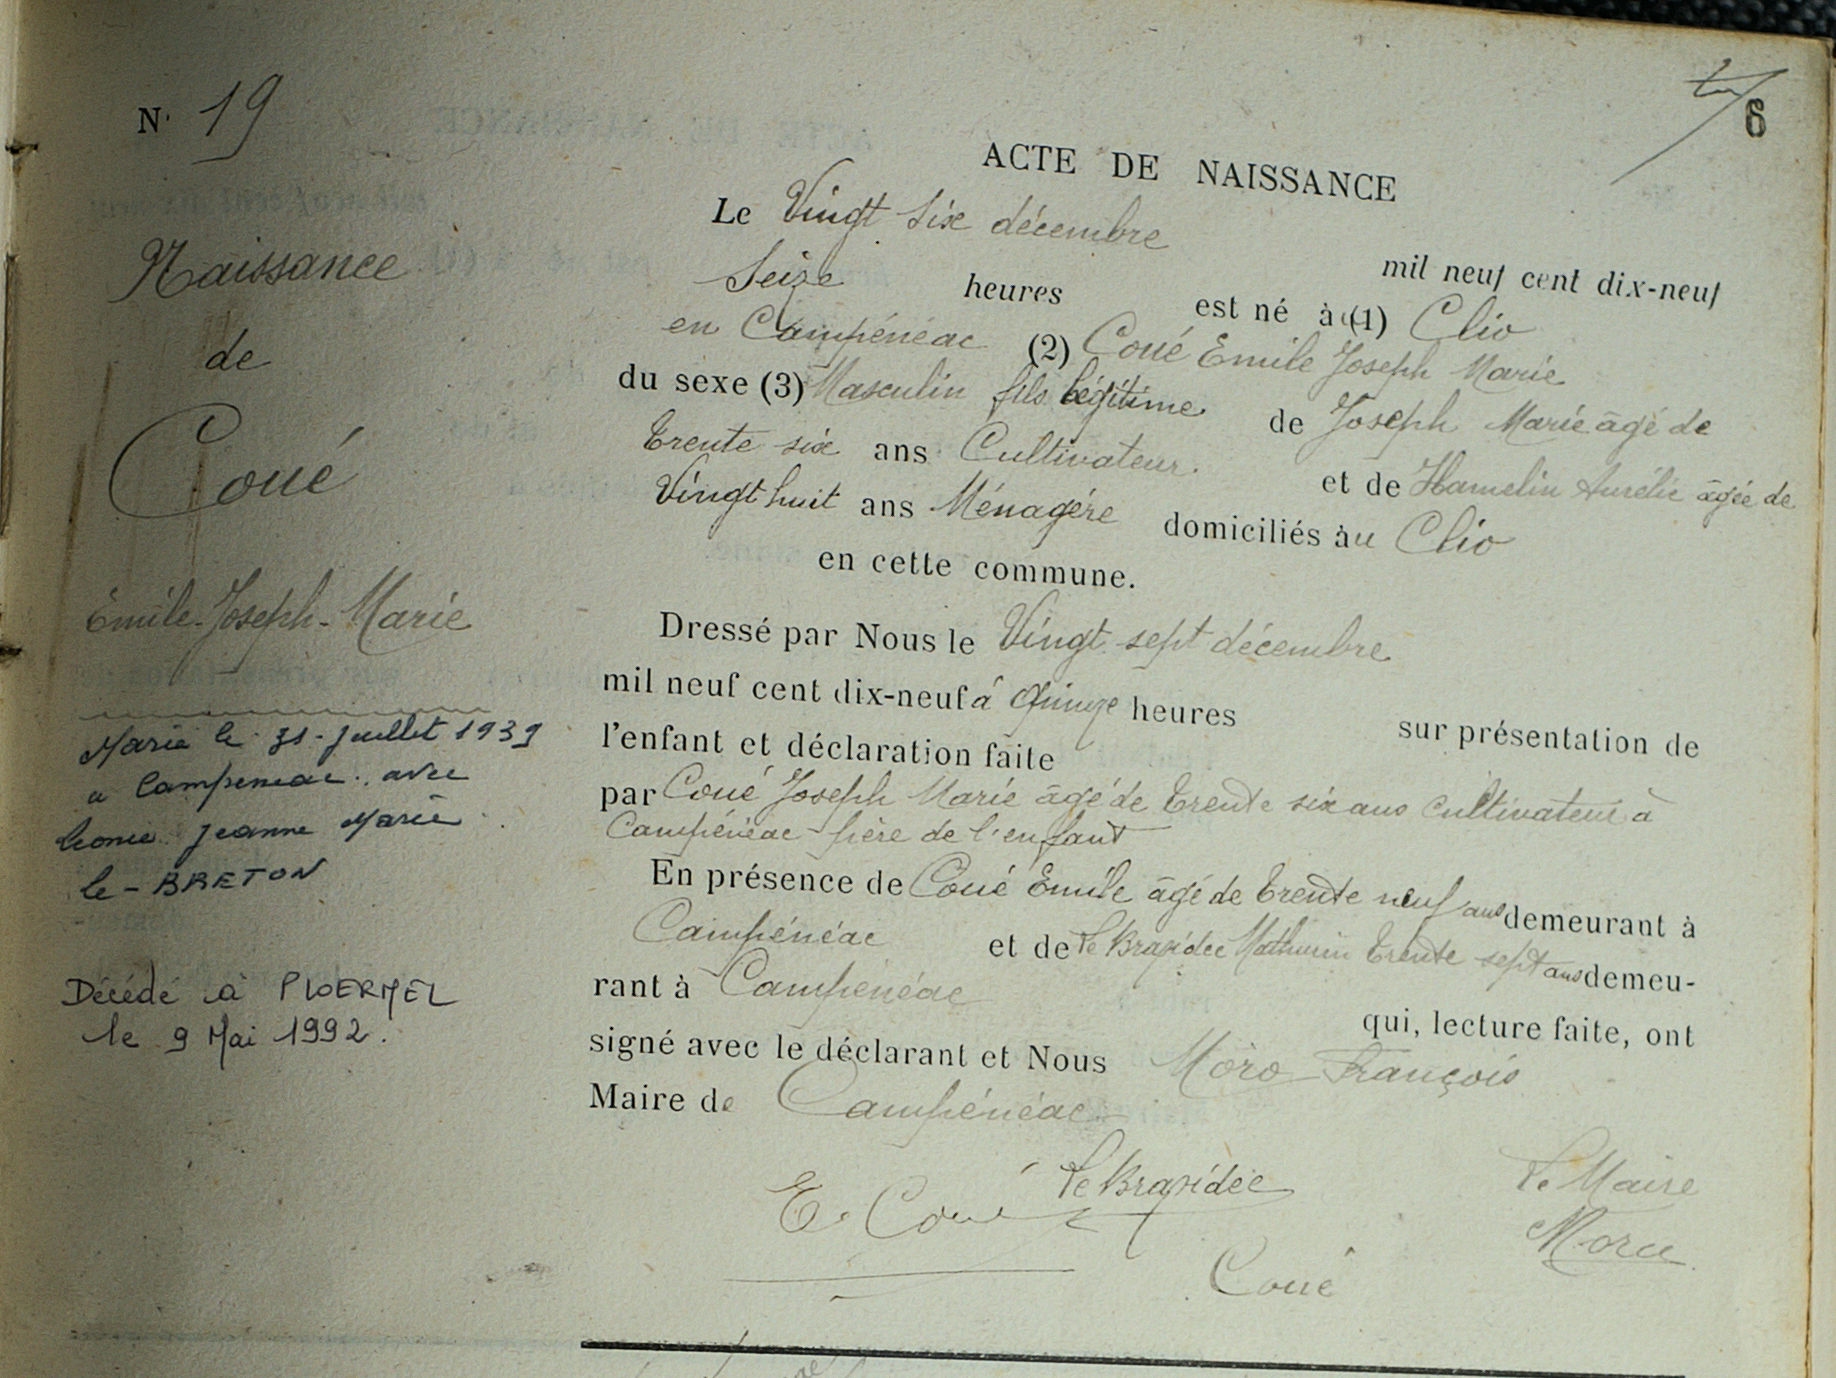 N. 19
6
Naissance
de
Coué
Emile-Joseph-Marie
Marié le 31-Juillet 1939
a Campeneac. avec
Leonie Jeanne Marie
le-BRETON
Décédé à PLOERMEL
le 9 Mai 1992.
ACTE DE NAISSANCE
Le Vingt six décembre mil neuf cent dix-neuf
Seize heures est né à (1) Clio
en Campénéac (2) Coué Emile Joseph Marie
du sexe (3) Masculin fils légitime de Joseph Marie âgé de
trente six ans Cultivateur. et de Hamelin Aurélie âgée de
Vingt huit ans Ménagère domiciliés àu Clio
en cette commune.
Dressé par Nous le Vingt-sept décembre
mil neuf cent dix-neuf à quinze heures sur présentation de
l'enfant et déclaration faite
par Coué Joseph Marie âgé de trente six ans cultivateur à
Campénéac père de l'enfant
En présence de Coué Emile âgé de trente neuf ans demeurant à
Campénéac et de Le Brazidec Mathurin trente sept ans demeu-
rant à Campénéac qui, lecture faite, ont
signé avec le déclarant et Nous Moro François
Maire de Campénéac
E. Coué Le Brazidec Le Maire
Coué Moro